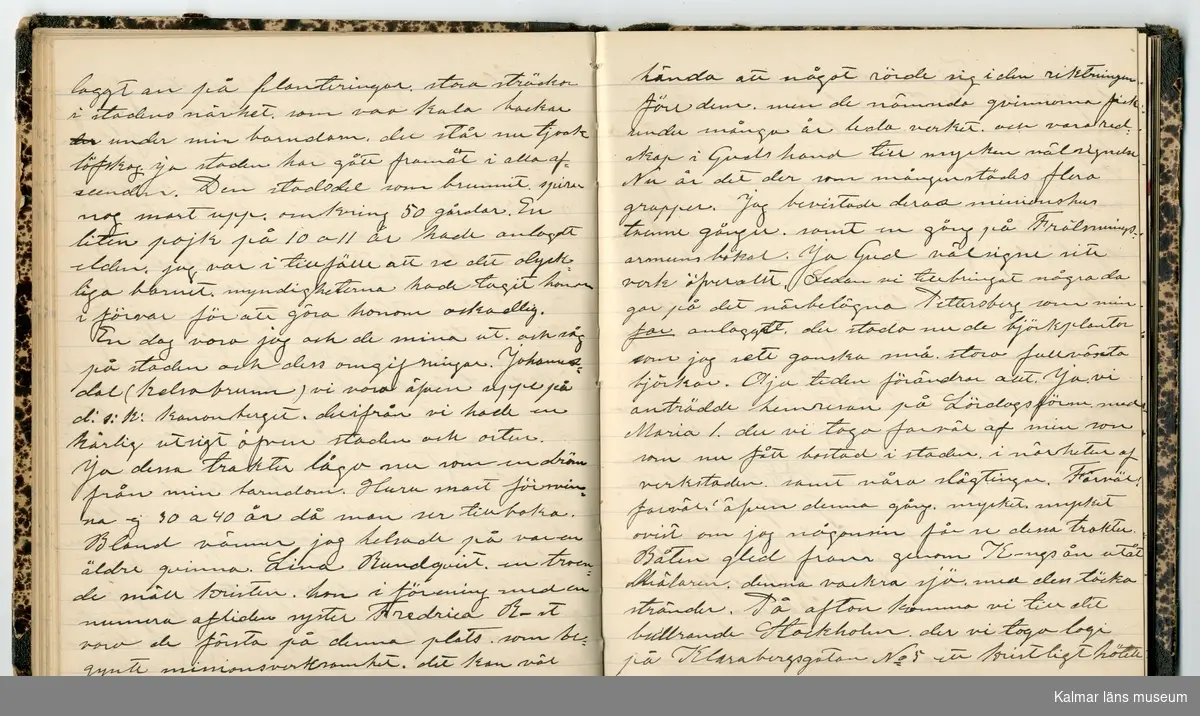 laggt an på planteringar. stora sträckor
i stadens närhet. som var kala backar
under min barndom. der står nu tjock
löfskog ja staden har gått framåt i alla af-
seenden. Den stadsdel som brunnit, spirar
nog snart upp. omkring 50 gårdar. En
liten pojk på 10 a 11 år hade anlagdt
elden. jag var i tillfälle att se det olyck-
liga barnet. myndigheterna hade tagit honom
i förvar för att göra honom oskadlig.
En dag voro jag och de mina ut. och såg
på staden och dess omgifningar. Johannes-
dal (Kelsobrunn) vi voro äfven uppe på
d: s: k: kanonberget. derifrån vi hade en
härlig utsigt öfver staden och orten.
Ja dessa trakter lågo nu som en dröm
från min barndom. Huru snart försvin-
na ej 30 a 40 år då man ser tillbaka.
Bland vänner jag helsade på var en
äldre qvinna. Lina Rundqvist. en troen-
de mått kristen. hon i förening med en
numera afliden syster Fredrica R-st
voro de första på denna plats. som be-
gynte missionsverksamhet. det kan väl
hända att något rörde sig i den riktningen
före dem. men de nämnda qvinnorna fick
under många år leda verket. och vara red-
skap i Guds hand till mycken välsignelse
Nu är det der som mångenstädes flera
grupper. Jag bevistade deras missionshus
trenne gånger. samt en gång på Frälsnings-
armeens lokal. Ja Gud välsigne sitt
verk öfverallt. Sedan vi tillbringat några da
gar på det närbelägna Pettersberg som min
far anlaggt, der stodo nu de björkplantor
som jag sett ganska små. stora fullväxta
björkar. O ja tiden förändrar allt. Ja, vi
anträdde hemresan på Lördags förm. med
Maria 1. der vi togo farväl af min son
som nu fått bostad i staden. i närheten af
verkstaden. samt våra slägtingar. Farväl!
farväl! äfven denna gång. mycket. mycket
ovist om jag någonsin får se dessa trakter.
Båten gled fram genom K-ngs ån utåt
Mälaren. denna vackra sjö. med dess täcka
stränder. På afton komma vi till det
bullrande Stockholm. der vi togo logi
på Klarabergsgatan No 5 ett kristligt hotell
Kalmar läns museum